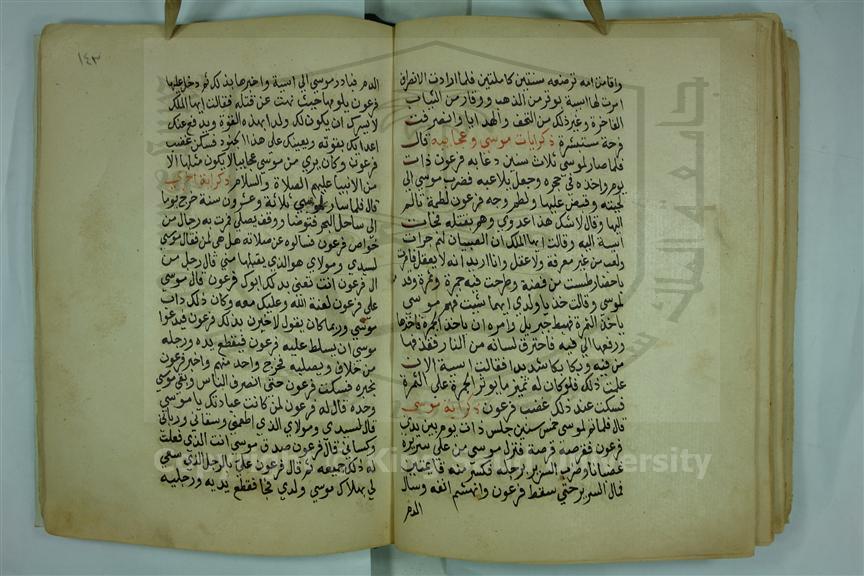 واقامت امه ترضعه سنتين كاملتين فلما ارادت الانصراف
امرت لها اسية بوقر من الذهب ووقار من الثياب
الفاخرة وغير ذلك من التحف والهدايا وانصرفت
فرحة مستبشرة ذكر ايات موسى وعجايبه قال
فلما صار لموسى ثلاث سنين دعا به فرعون ذات
يوم واخذه في حجره وجعل يلاعبه فضرب موسى الى
لحيته وقبض عليها ولطم وجه فرعون لطمة
وقال لا شك هذا عدوي وهم بقتله فجات
اسية اليه وقالت ايها الملك ان الصبيان لهم جرات
من غير معرفة ولا عقل وانا اريد انه لا يعقل فامرت
باحضار طست من فضة وطرحت فيه جمرة وتمرة
لموسى وقالت خذ يا ولدي ايهما شئت فهم موسى
ياخذ التمرة فهبط جبريل وامره ان ياخذ الجمرة فاخذها
ورفعها الى فيه فاحترق لسانه من النار فقذفها
من فيه وبكا بكا شديدا فقالت اسية الان
علمت ذلك فلو كان له تميز ما يوثر الجمرة على التمرة
فسكت عند ذلك غضب فرعون ذكر اية موسى
قال فلما تم لموسى خمس سنين جلس ذات يوم بين يدي
فرعون فقرصه قرصة فنزل موسى من على سريره
غضبانا وضرب السرير برجله فكسر منه قايمتين
فمال السرير حتى سقط فرعون وانهشم انفه وسال
الدم
١٤٣
الدم فبادر موسى الى اسية واخبرها بذلك ثم دخل عليها
فرعون يلومها حيث نهت عن قتله فقالت ايها الملك
لا يسرك ان يكون لك ولد بهذه القوة ويدفع عنك
اعدائك بقوته ويعينك على هذا الجنود فسكن غضب
فرعون وكان يري من موسى عجايبا لا يكون مثلها الا
من الانبيا عليهم الصلاة والسلام ذكر اية اخرى
قال فلما صار لموسى ثلاثة وعشرون سنة خرج يوما
الى ساحل اليم فتوضا ووقف يصلي فمرت به رجال من
خواص فرعون فسالوه عن صلاته هل هي لمن فقال موسى
لسيدي ومولاي هو الذي يقبلها مني قال رجال من
ال فرعون انت تعني بذلك ابوك فرعون قال موسى
على فرعون لعنة الله وعليك معه وكان ذلك داب
موسى وربما كان يقول لاخبرن بذلك فرعون فيدعوا
موسى ان يسلط عليه فرعون فيقطع يده ورجله
من خلاف ويصلبه فخرج واحد منهم واخبر فرعون
بخبره فسكت فرعون حتى انصرف الناس وبقي موسى
وحده قال له فرعون لمن كانت عبادتك يا موسى
قال لسيدي ومولاي الذي اطعمني وسقاني ورباني
وكساني قال فرعون صدق موسى انت الذي فعلت
له ذلك جميعه ثم قال فرعون علي بالرجل الذي سعى
لي بهلاك موسى ولدي فجا فقطع يديه ورجليه
جامعة الملك سعود
Copyright © King Saud University